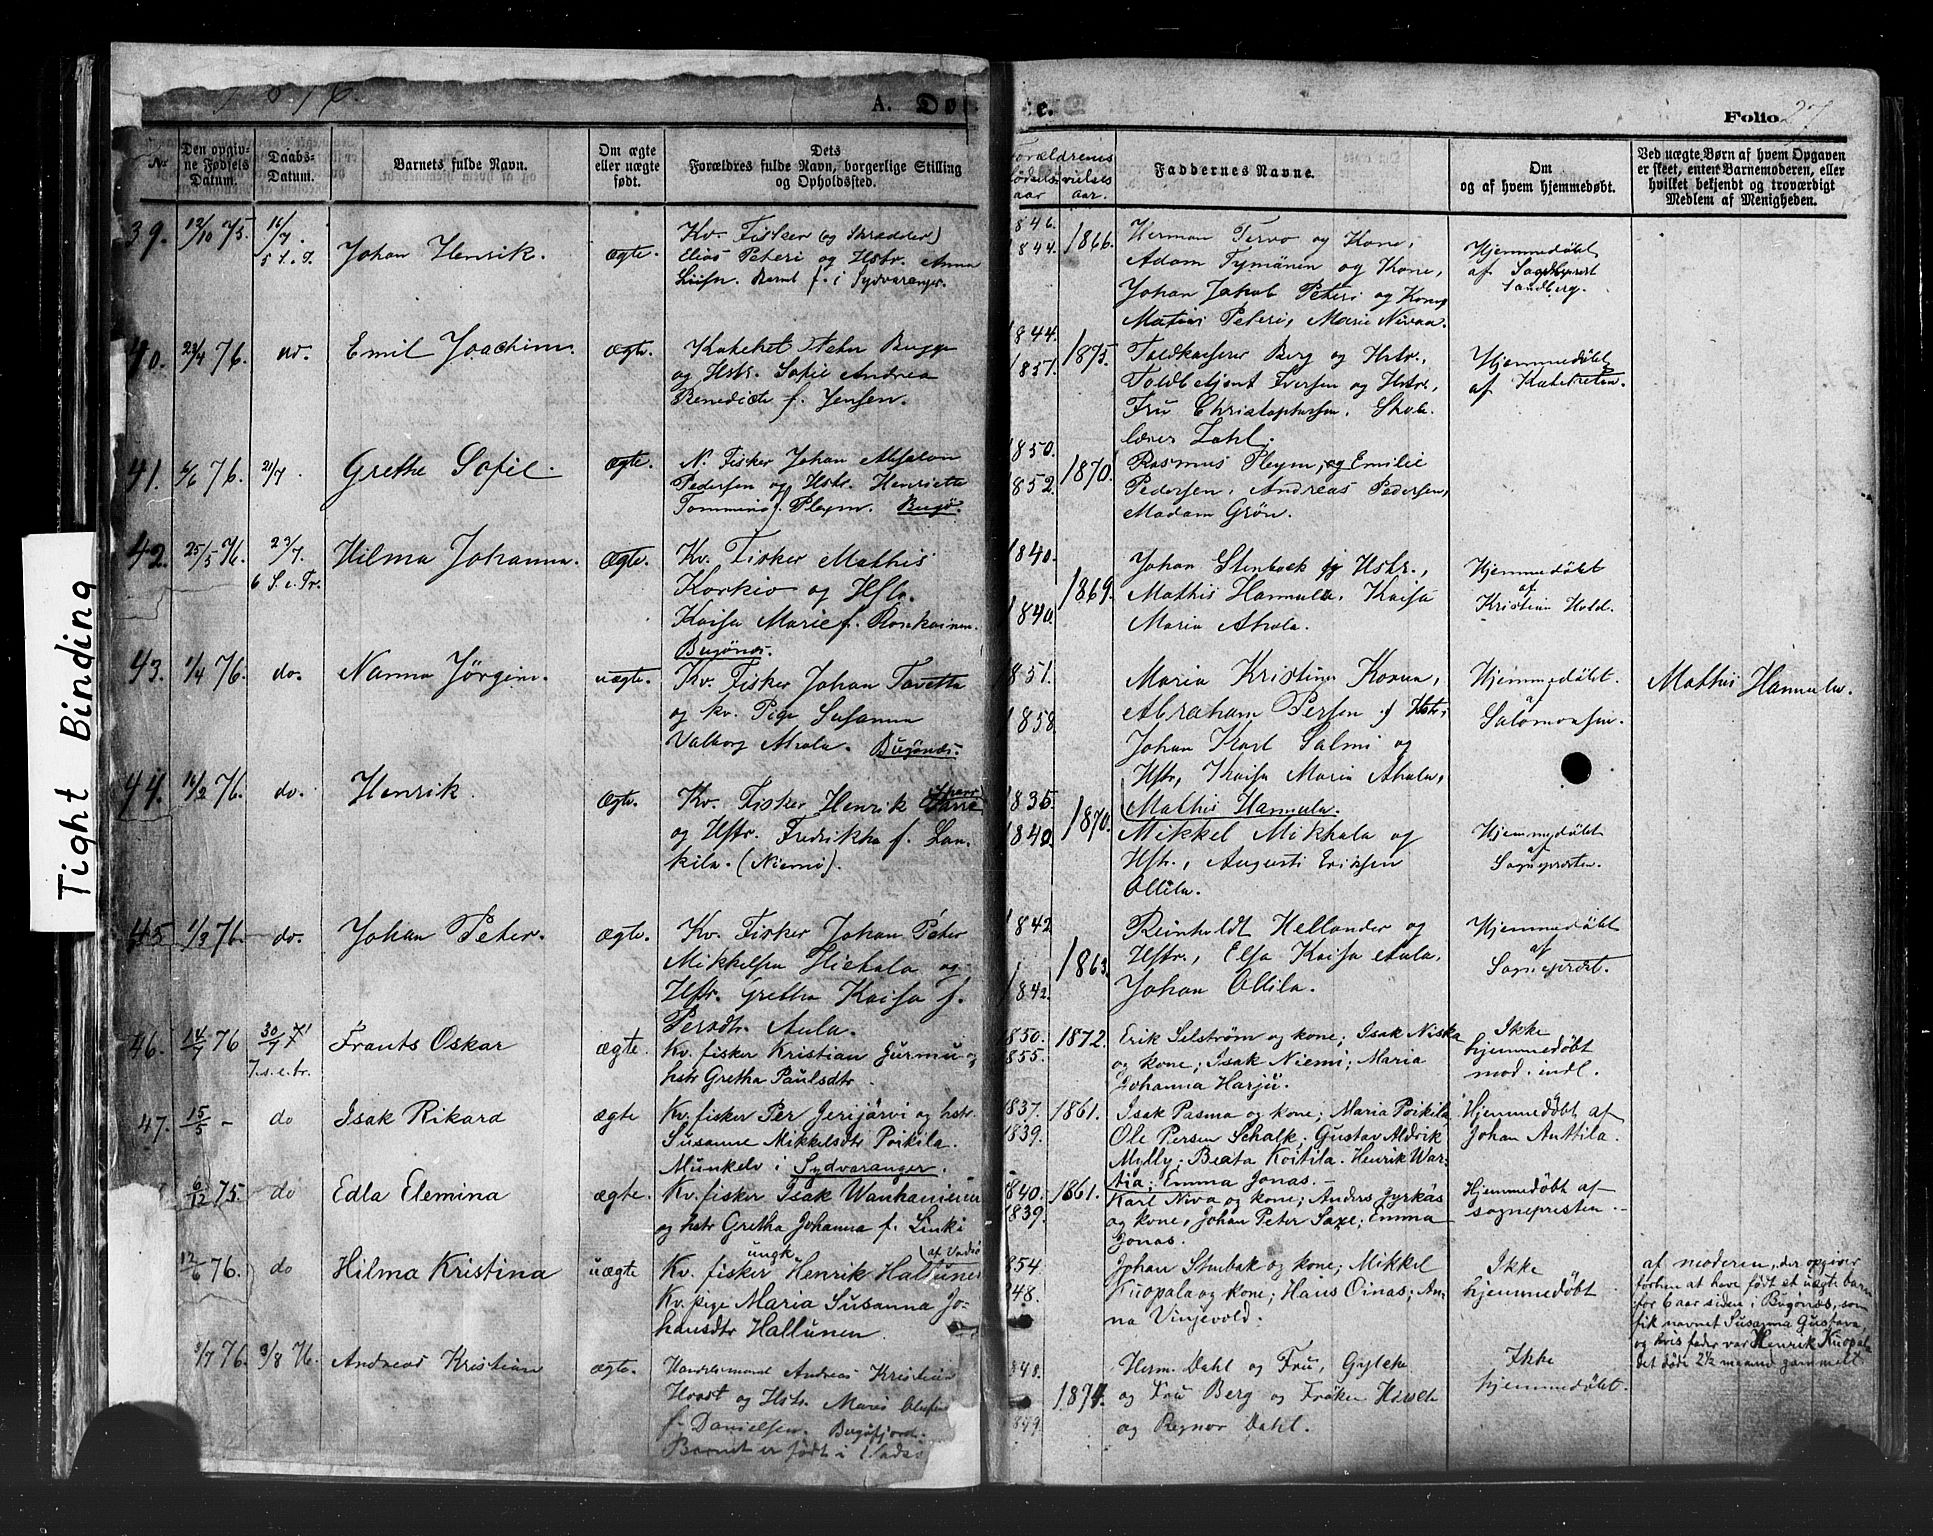 1876.
A. Døb
te.
Folio 27
Nr.
Den opgiv-
ne Fødsels
Datum.
Daabs-
Datum.
Barnets fulde Navn.
Om ægte
eller uægte
født.
Dets
Forældres fulde Navn, borgerlige Stilling
og Opholdssted.
Forældrenes
Fødsels- vielses
aar aar.
Faddernes Navne.
Om
og af hvem hjemmedøbt.
Ved uægte Børn af hvem Opgaven
er skeet, enten Barnemoderen, eller
hvilket bekjendt og troværdigt
Medlem af Menigheden.
39. 12/10 75. 16/7.
5 S. e. T.
Johan Henrik.
ægte.
Kv. Fisker (og Skrædder)
Elias Peteri og Hstr. Anna
Liisa. Barnet f. i Sydvaranger.
1846.
1844. 1866.
Herman Tervo og Kone,
Adam Tymänen og Kone,
Johan Jakob Peteri og Kone
Matias Peteri, Marie Nivaa.
Hjemmedøbt
af Sognepræst
Sandberg.
40. 23/4 76. do.
Emil Joachim.
ægte.
Kateket Peter Bugge
og Hstr. Sofie Andrea
Benedicte f. Jensen.
1844.
1857. 1875.
Toldkasserer Berg og Hstr.,
Toldbetjent Iversen og Hstr.,
Fru Christophersen. Skole-
lærer Zahl.
Hjemmedøbt
af Kateketen.
41. 6/6 76. 21/7.
Grethe Sofie.
ægte.
N. Fisker Johan Absalon
Pedersen og Hstr. Henriette
Tommine f. Pleym. Bugø.
1850.
1852. 1870.
Rasmus Pleym, og Emilie
Pedersen, Andreas Pedersen,
Madam Grøn.
42. 25/5 76. 23/7.
6 S. e. Tr.
Hilma Johanna.
ægte.
Kv. Fisker Mathis
Korkio og Hstr.
Kaisa Marie f. Ronkainen.
Bugønæs.
1840.
1840. 1869.
Johan Stenbock og Hstr.,
Mathis Hannula, Kaisa
Maria Ahola.
Hjemmedøbt
af
Kristian Hold.
43. 1/4 76. do.
Nanna Jörgine.
uægte.
Kv. Fisker Johan Tavetta
og kv. Pige Susanna
Valborg Ahola. Bugönæs.
1851.
1858.
Maria Kristina Korva,
Abraham Persen og Hstr.
Johan Karl Salmi og
Hstr, Kaisa Maria Ahola,
Mathis Hannula.
Hjemmedøbt.
af
Salomonsen.
Mathis Hannula.
44. 16/2 76. do.
Henrik.
ægte.
Kv. Fisker Henrik
og Hstr. Fredrikka f. Lan-
kila. (Niemi).
1835.
1840. 1870.
Mikkel Mikkala og
Hstr., Augusti Eriksen
Ollila.
Hjemmedøbt
af
Sognepræsten.
45. 1/3 76. do.
Johan Peter.
ægte.
Kv. Fisker Johan Peter
Mikkelsen Hietala og
Hstr. Gretha Kaisa f.
Persdtr. Aula.
1842
1842. 1863.
Reinholdt Hellander og
Hstr., Elsa Kaisa Aula,
Johan Ollila.
Hjemmedøbt
af
Sognepræst.
46. 14/7 76 30/7
7. s. e. tr.
Frants Oskar
ægte.
Kv. fisker Kristian Gurmu og
hstr Gretha Paulsdtr.
1850.
1855. 1872.
Erik Selström og kone; Isak Niska
og kone; Isak Niemi; Maria
Johanna Harju.
Ikke
hjemmedøbt
mod. indl.
47. 15/5 - do
Isak Rikard
ægte
Kv. fisker Per Jerijärvi og hstr
Susanne Mikkelsdtr Poikila.
Munkelv i Sydvaranger.
1837.
1839. 1861.
Isak Pasma og kone; Maria Poikila,
Ole Persen Schalk; Gustav Aldrik
Mylly; Beata Koitila. Henrik War-
tia; Emma Jonas. -
Hjemmedøbt af
Johan Anttila.
6/12 75. do
Edla Elemina
ægte.
Kv. fisker Isak Wanhaniemi
og hstr Gretha Johanna f. Linki
1840.
1839. 1861.
Karl Niva og kone; Anders Jyrkäs
og kone, Johan Peter Saxe; Emma
Jonas.
Hjemmedøbt af
sognepresten. -
12/6 76. do
Hilma Kristina
uægte
Kv. ungk. fisker Henrik Hallunen (af Vadsø
Kv. pige Maria Susanna Jo-
hansdtr Hallunen.
1854.
1848.
Johan Stubak og kone; Mikkel
Kuopala og kone; Hans Oinas; An-
na Vinjevold.
Ikke
hjemmedøbt
af moderen, der opgiver
forhen at have født et uægte barn
for 6 aar siden i Bugönæs, som
fik navnet Susanna Gustava,
og hvis fader var Henrik Kuopala
det døde 2½ maaned gammelt
3/7 76. 3/8 76.
Andreas Kristian
ægte.
Handelsmand Andreas Kristian
Hvidt og Hstr. Marie Olufine
f. Danielsen. Bugøfjord.
Barnet er født i Vadsø
1848.
1849 1874.
Herm. Dahl og Fru, Gylche
og Fru Berg og Frøken Hvidt
og Reynor Dahl.
Ikke
hjemmedøbt.
Tight Binding